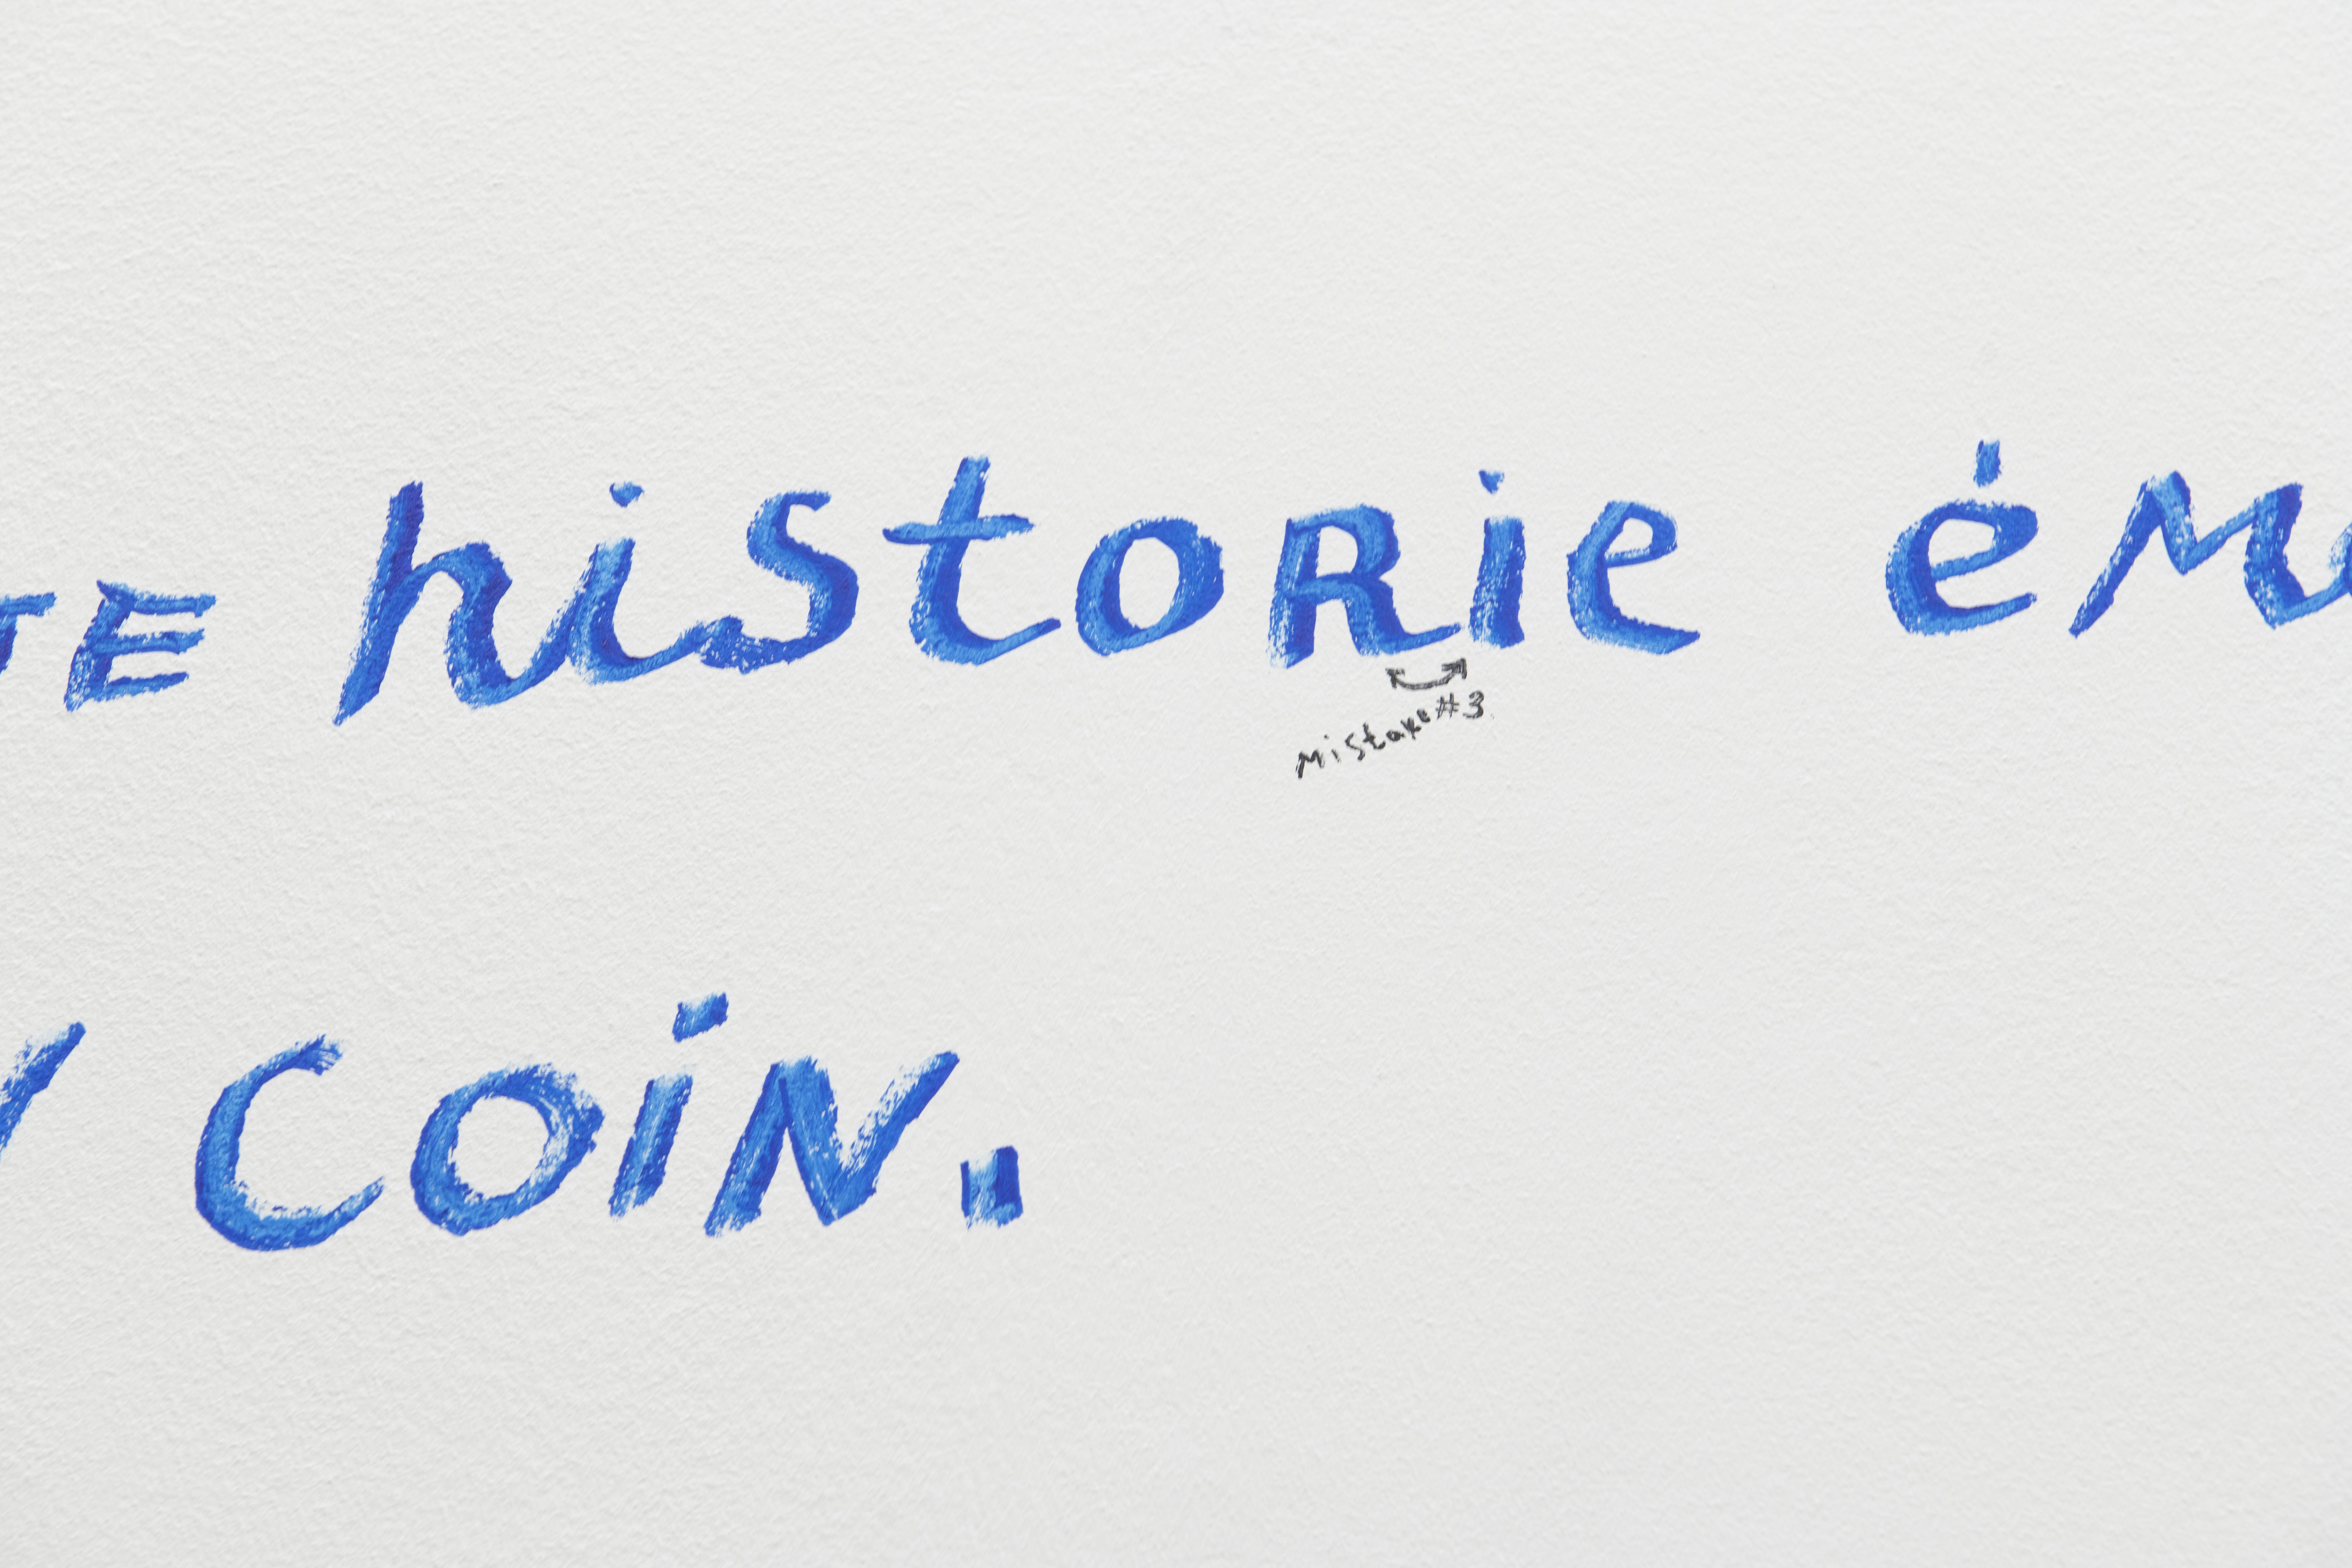 TE historie ém
mistake #3
coin.